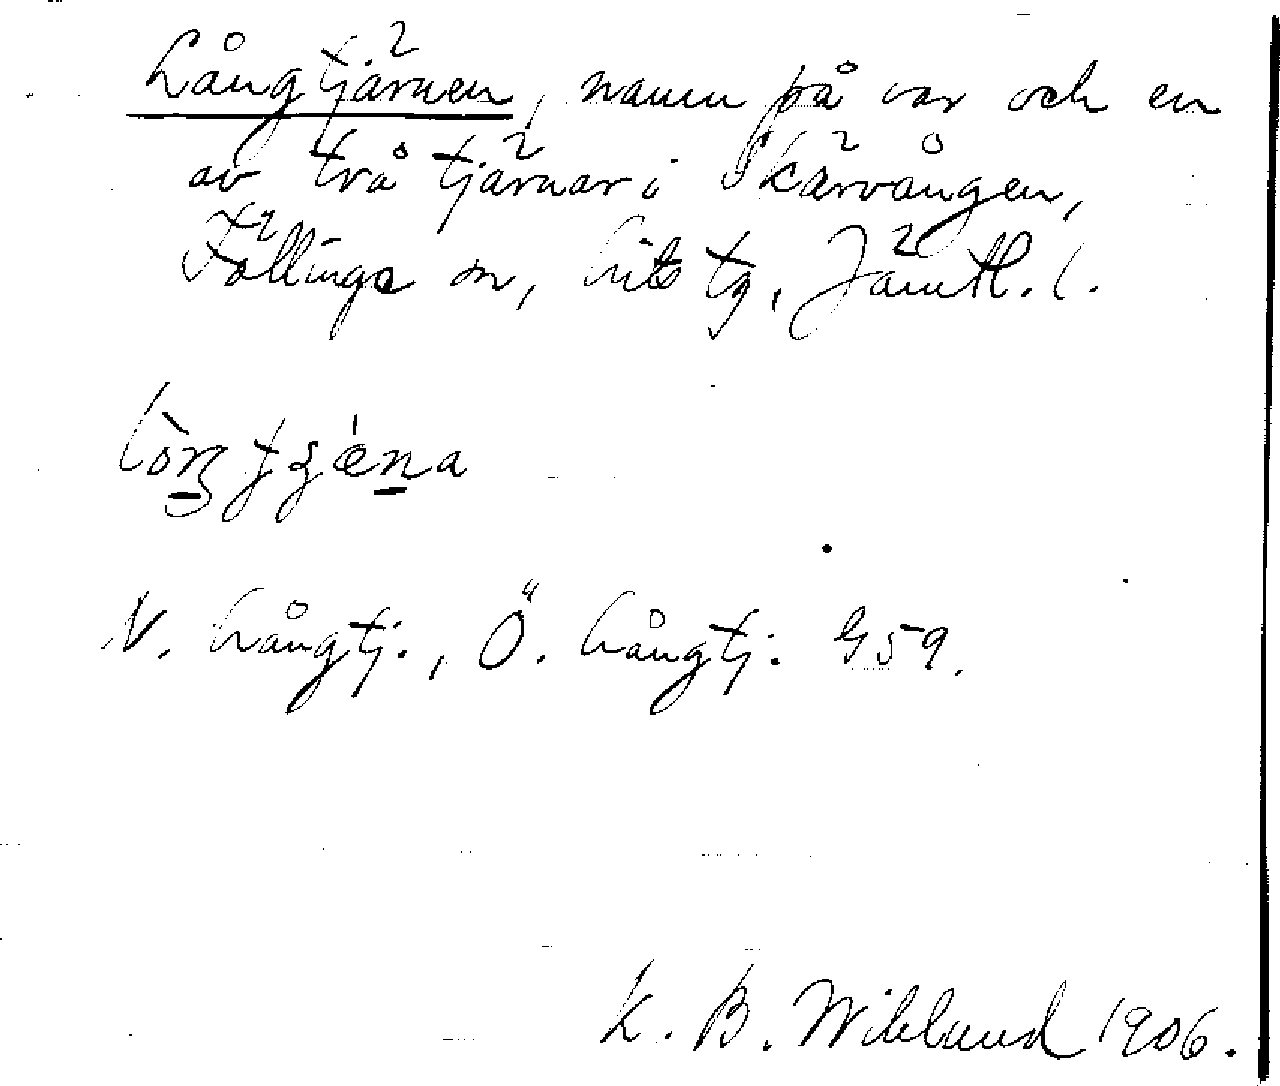 Långtjärnen, namn på var och en
av två tjärnar i Skärvången,
Föllinge sn, Lits tg, Jämtl. l.
N. Långtj., Ö. Långtj. G 59.
K. B. Wiklund 1906.